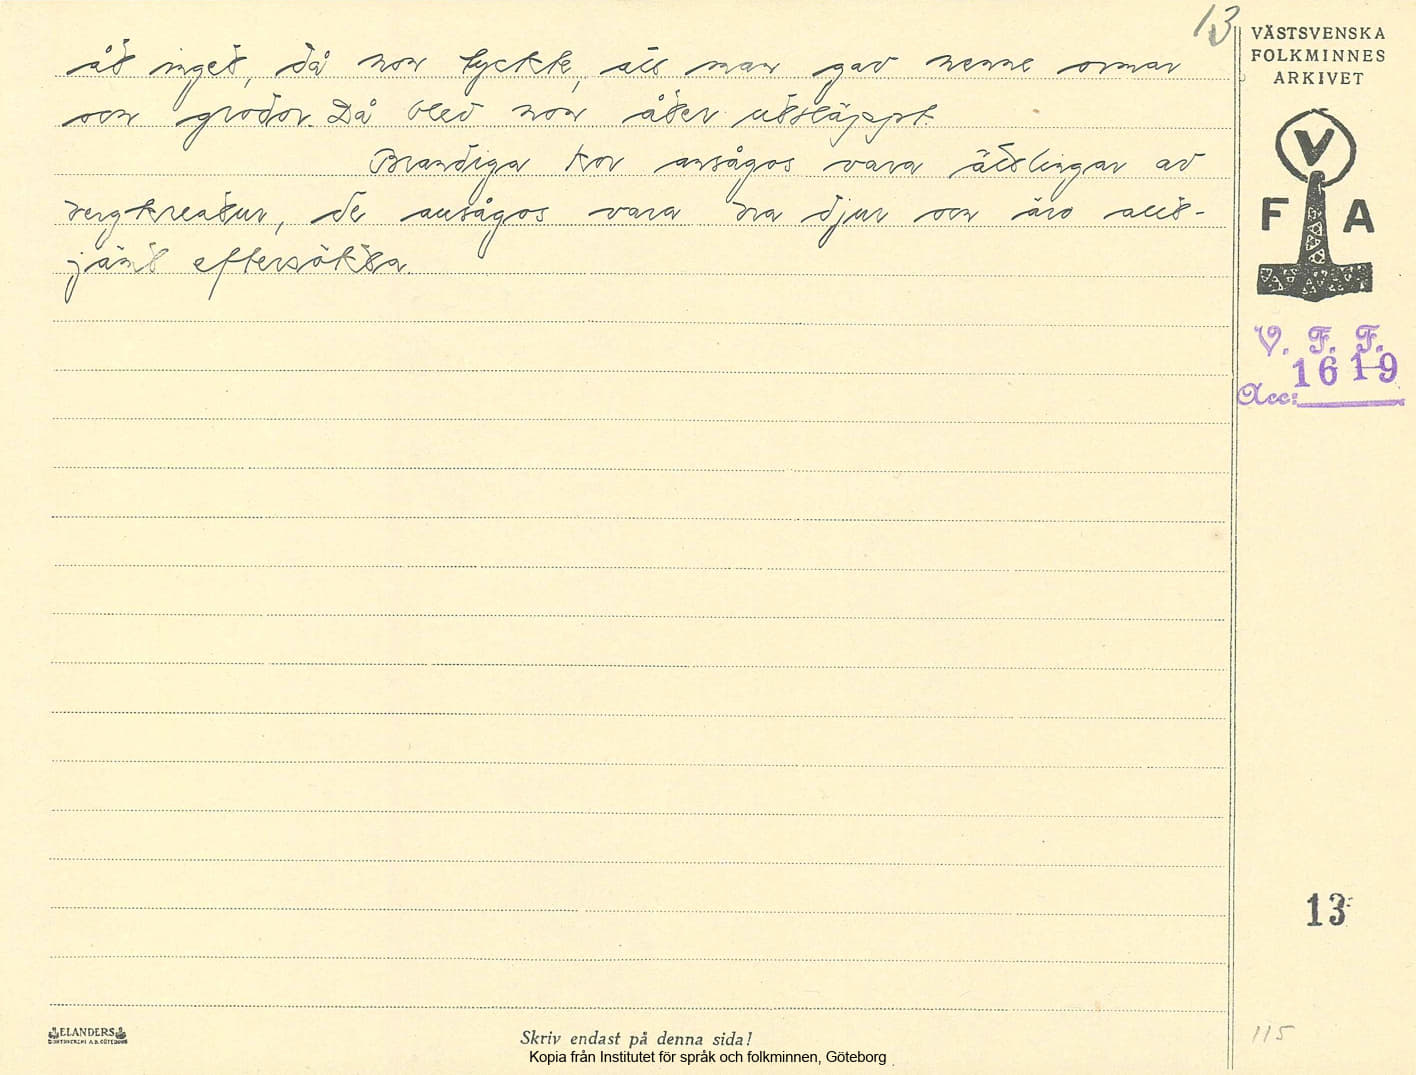 13
VÄSTSVENSKA
FOLKMINNES
ARKIVET
åt inget, då hon tyckte, att man gav henne ormar
och grodor. Då blev hon åter utsläppt.
Brandiga kor ansågos vara ättlingar av
bergkreatur, de ansågos vara bra djur och äro allt-
jämt eftersökta.
V
F A
V. F. F.
1619
Acc:
13
ELANDERS
BOKTRYCKERI A.B. GÖTEBORG
Skriv endast på denna sida!
115
Kopia från Institutet för språk och folkminnen, Göteborg